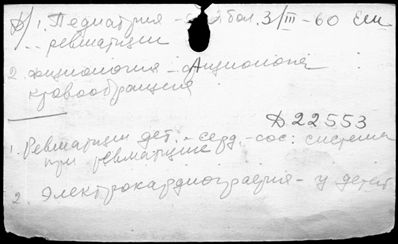 1. Педиатрия - бол. 3/III - 60 Еш
ревматизм
2. физиология -
кровообращения
Д22553
1. Ревматизм дет. - серд.-сос: система
при ревматизме
2. Электрокардиография - у детей